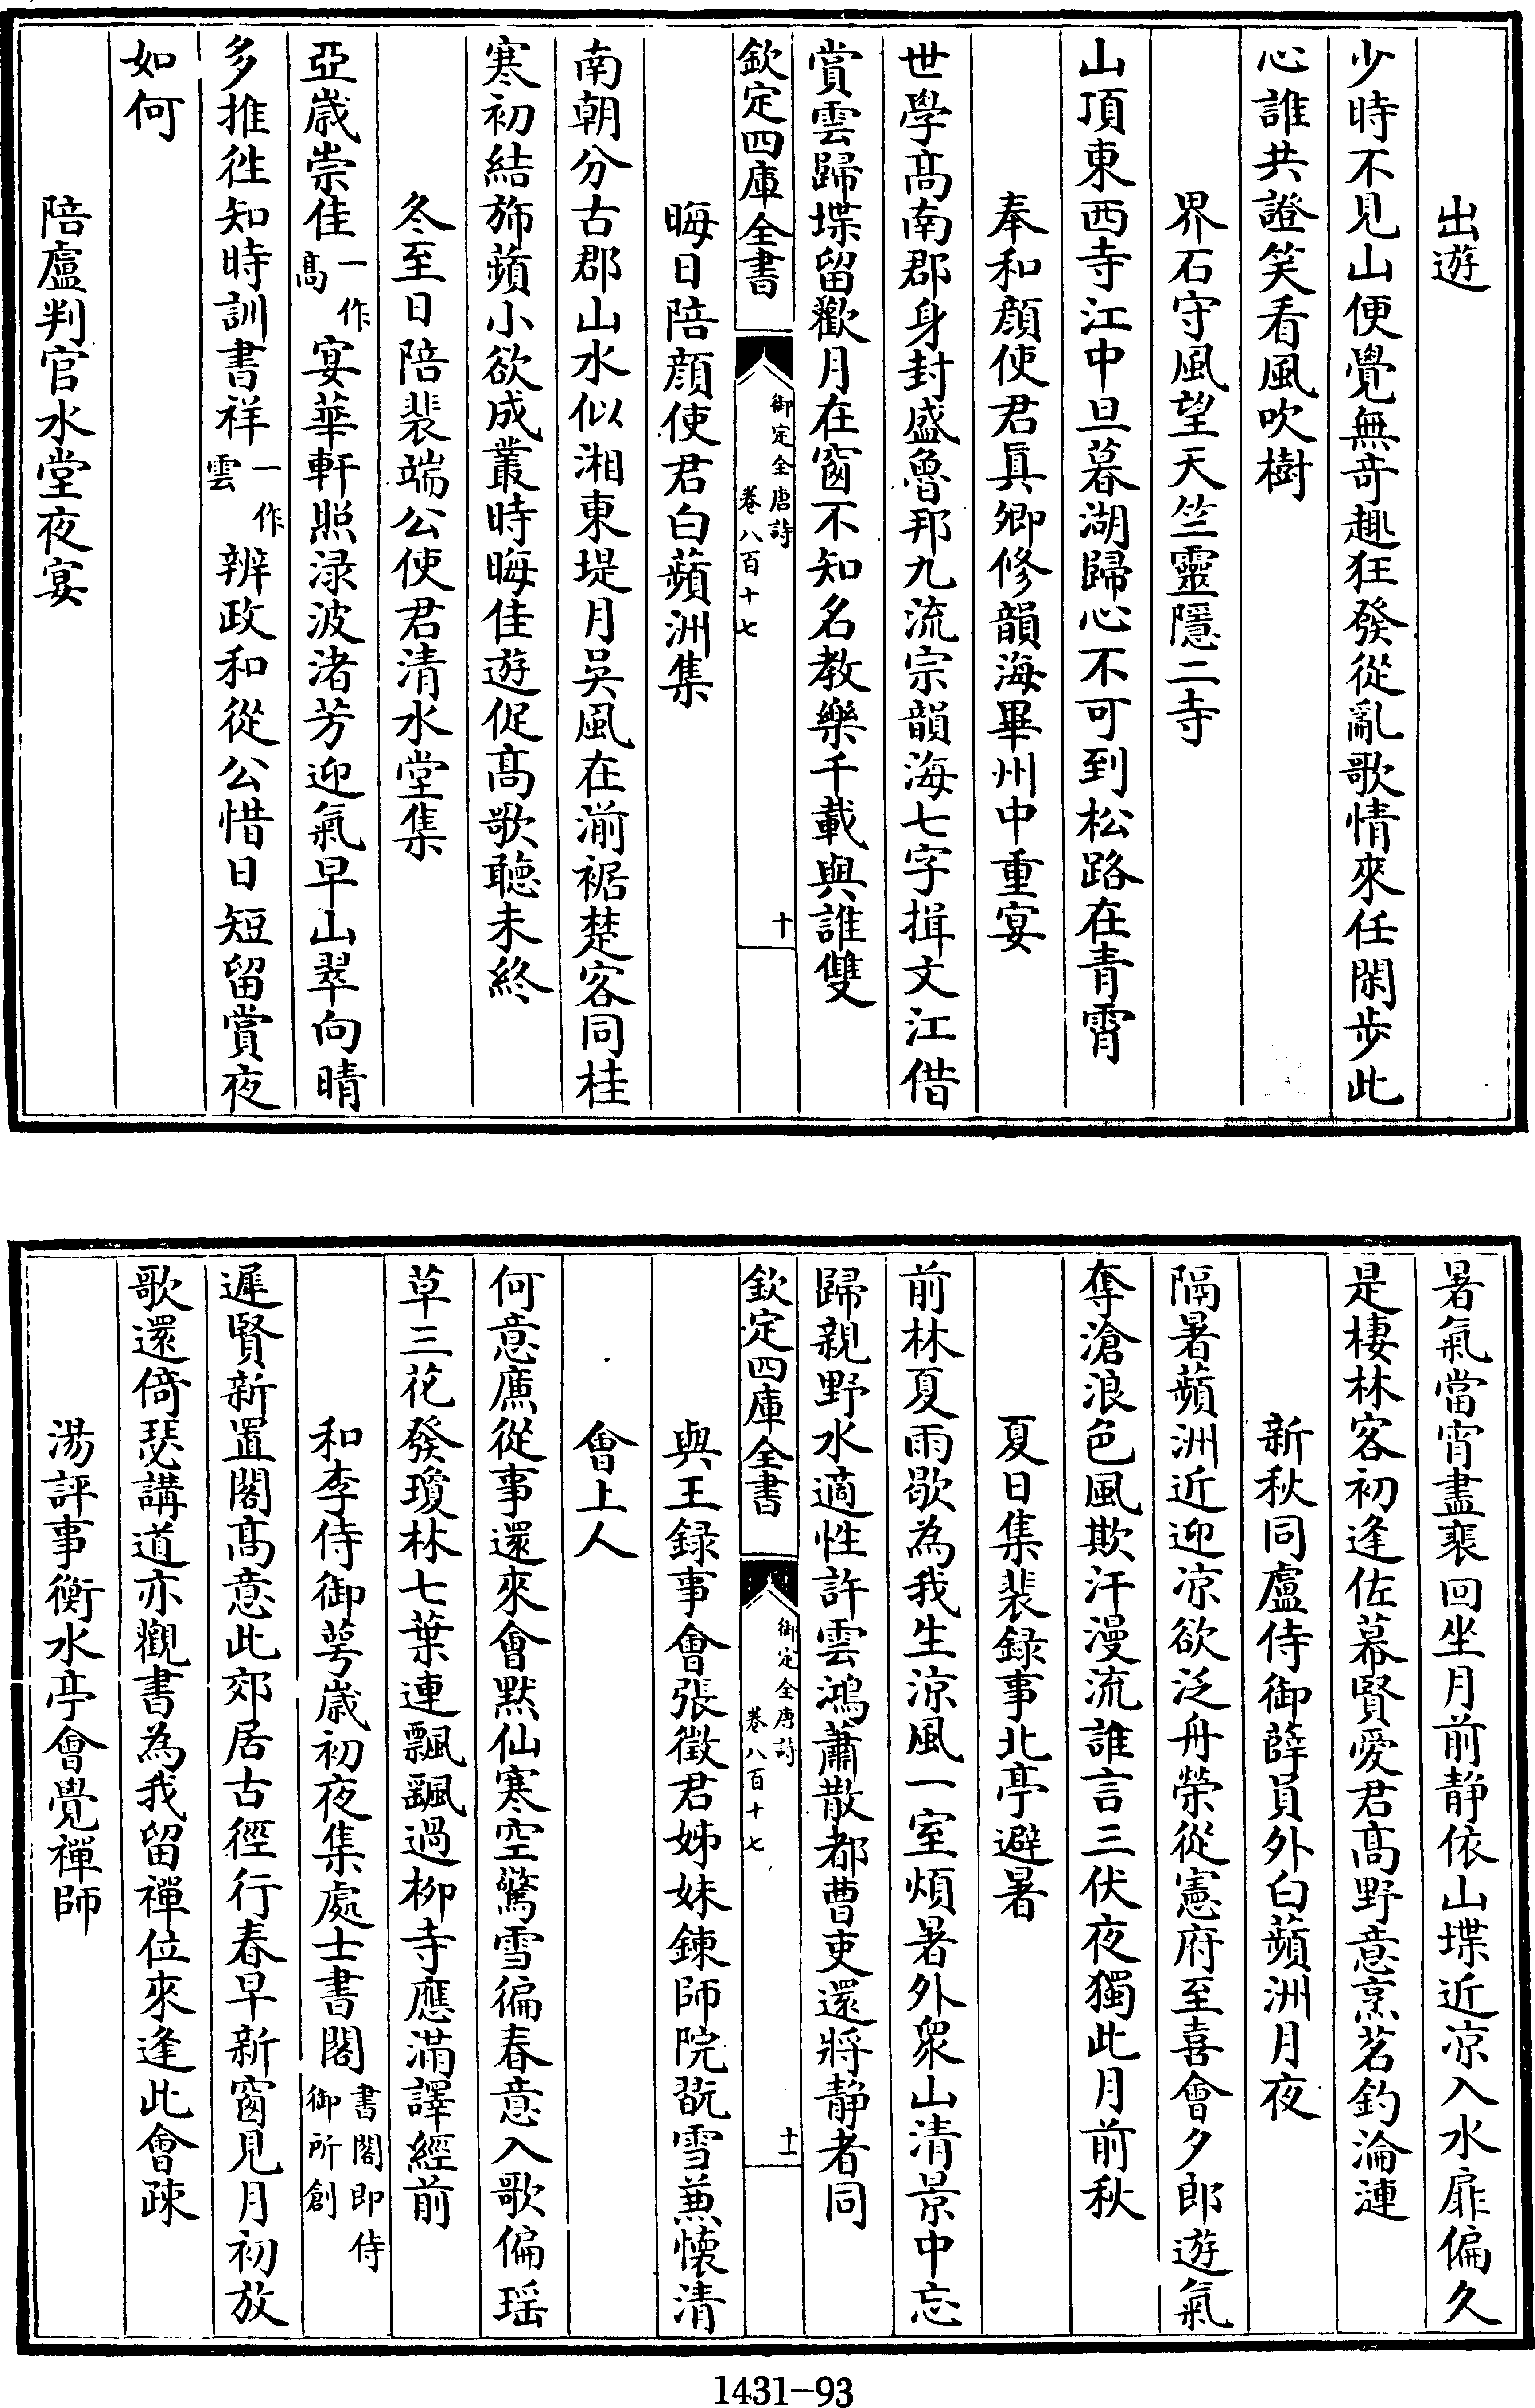 出遊
少時不見山便覺無奇趣狂發從亂歌情來任閑步此
心誰共證笑看風吹樹
界石守風望天竺靈隱二寺
山頂東西寺江中旦暮湖歸心不可到松路在青霄
奉和顔使君真卿修韻海畢州中重宴
世學髙南郡身封盛魯邦九流宗韻海七字揖文江借
賞雲歸堞留歡月在窗不知名教樂千載與誰雙
欽定四庫全書
御定全唐詩
卷八百十七
十
晦日陪顔使君白蘋洲集
南朝分古郡山水似湘東堤月吳風在湔裾楚客同桂
寒初結斾蘋小欲成叢時晦佳遊促髙歌聴未終
冬至日陪裴端公使君清水堂集
亞歳崇佳一作髙宴華軒照渌波渚芳迎氣早山翠向晴
多推徃知時訓書祥一作雲辨政和從公惜日短留賞夜
如何
陪盧判官水堂夜宴
暑氣當宵盡裵回坐月前静依山堞近凉入水扉偏久
是棲林客初逢佐幕賢愛君髙野意烹茗釣淪漣
新秋同盧侍御薛員外白蘋洲月夜
隔暑蘋洲近迎凉欲泛舟榮從憲府至喜會夕郎遊氣
奪滄浪色風欺汗漫流誰言三伏夜獨此月前秋
夏日集裴録事北亭避暑
前林夏雨歇為我生涼風一室煩暑外衆山清景中忘
歸親野水適性許雲鴻蕭散都曹吏還將静者同
欽定四庫全書
御定全唐詩
卷八百十七
十一
與王録事會張徵君姊妹鍊師院翫雪蒹懷清
會上人
何意廌從事還來會默仙寒空驚雪徧春意入歌偏瑶
草三花發瓊林七葉連飄颻過栁寺應滿譯經前
和李侍御萼歳初夜集處士書閣書閣即侍御所創
遲賢新置閣髙意此郊居古徑行春早新窗見月初放
歌還倚瑟講道亦觀書為我留禪位來逢此會疎
湯評事衡水亭會覺禪師
1431-93